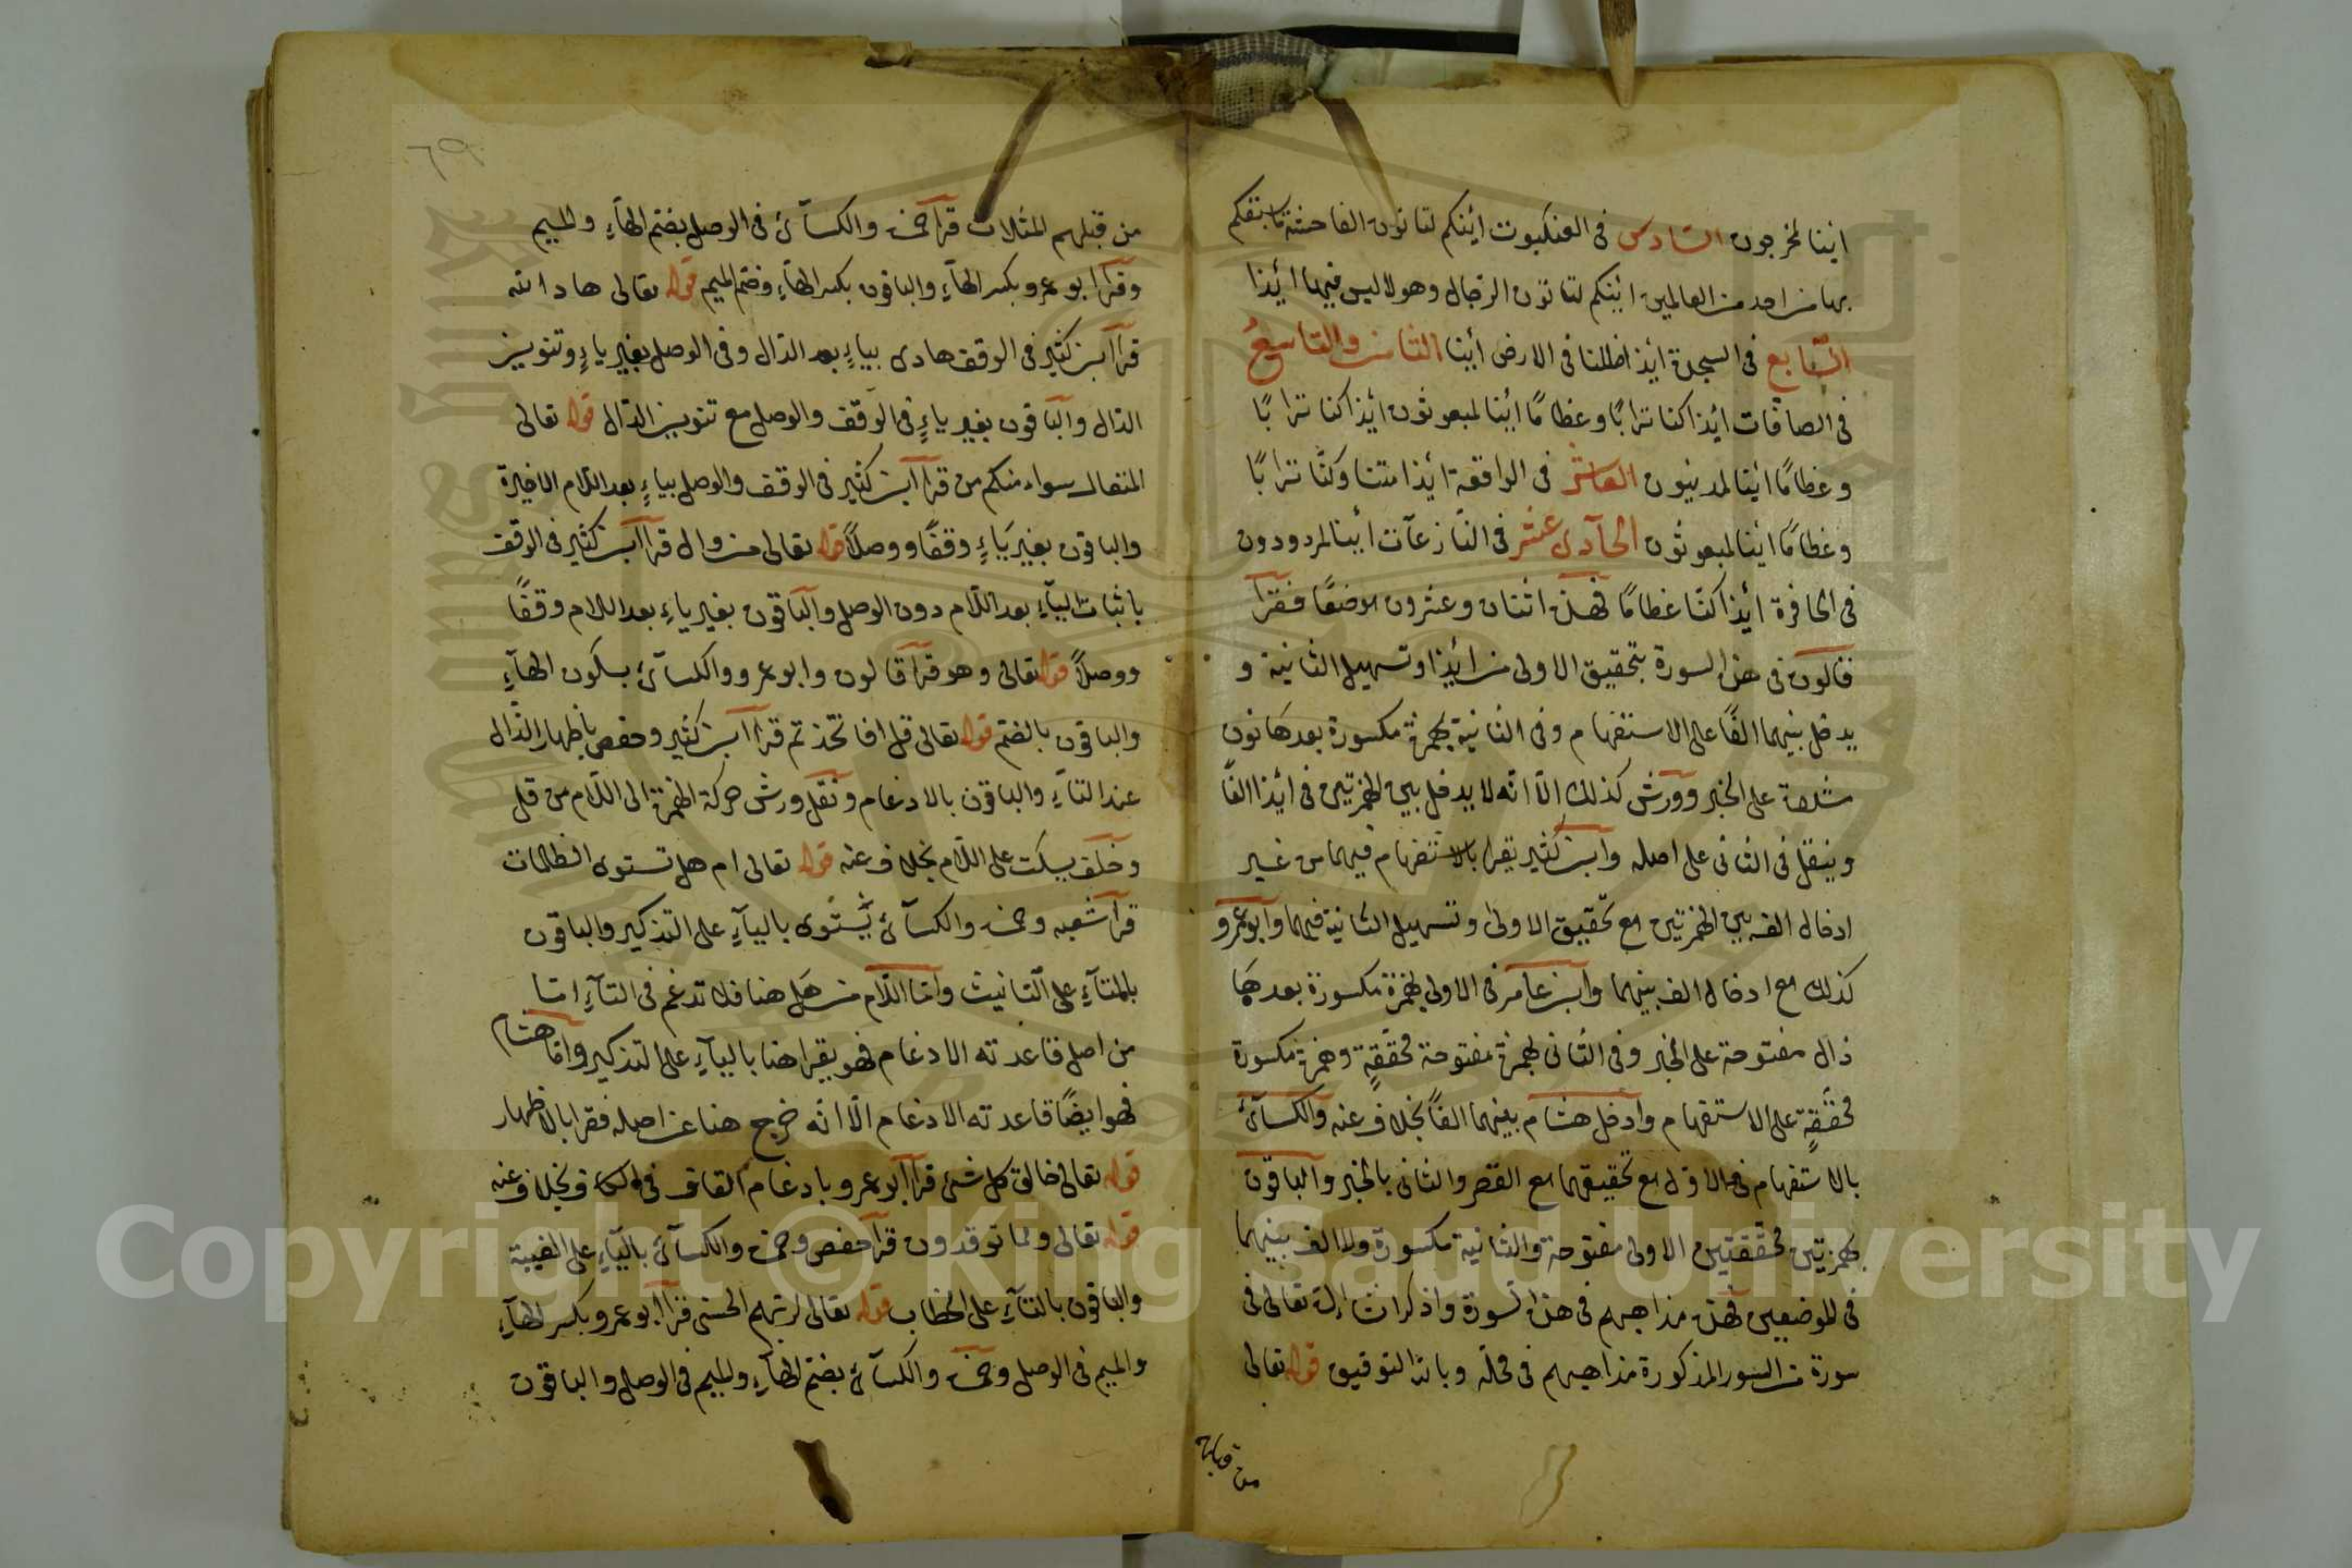 ائنا لمخرجون السادس فى العنكبوت ائنكم لتاتون الفاحشة ما سبقكم
بها من احد من العالمين ائنكم لتاتون الرجال وهولا ليس فيها أئذا
السابع فى السجدة ائذا ضللنا فى الارض أئنا الثامن والتاسع
فى الصافات ائذا كنا ترابًا وعظامًا ائنا لمبعوثون ائذا كنا ترابًا
وعظامًا ائنا لمدينون العاشر فى الواقعة ائذا متنا وكنّا ترابًا
وعظامًا ائنا لمبعوثون الحآدى عشر فى النّازعآت أئنا لمردودون
فى الحافرة أئذا كنّا عظامًا فهذه اثنان وعشرون موضعًا فقرأ
قالون فى هذه السورة بتحقيق الاولى من ائذا وتسهيل الثانية و
يدخل بينهما الفًا على الاستفهام وفى الثانية بهمزة مكسورة بعدها نون
مشددة على الخبر وورش كذلك الّا انّه لا يدخل بين الهمزتين فى ائذا الفًا
وينقل فى الثانى على اصله وابن كثير يقرا بالاستفهام فيهما من غير
ادخال الف بين الهمزتين مع تحقيق الاولى وتسهيل الثانية فيهما وابو عمرو
كذلك مع ادخال الف بينهما وابن عامر فى الاولى بهمزة مكسورة بعدها
ذال مفتوحة على الخبر وفى الثانى بهمزة مفتوحة محققةٍ وهمزة مكسورة
محققةٍ على الاستفهام وأدخل هشام بينهما الفًا بخلاف عنه والكسآئى
بالاستفهام فى الاوّل مع تحقيقهما مع القصر والثانى بالخبر والباقون
بهمزتين محققتين الاولى مفتوحة والثانية مكسورة ولا الف بينهما
فى الموضعين فهذه مذاهبهم فى هذه السورة واذكر ان شاء الله تعالى فى
سورة من السور المذكورة مذاهبهم فى محلّه وبالله التوفيق قوله تعالى
من قبلهم
من قبلهم المثلات قرآ حمزه والكسآئى فى الوصل بضم الهآءِ والميم
وقرآ ابو عمرو بكسر الهآءِ والباقون بكسر الهآءِ وضم الميم قوله تعالى هاد الله
قرا ابن كثير فى الوقف هادى بياءٍ بعد الدّال وفى الوصل بغير ياءٍ وتنوين
الدّال والباقون بغير ياءٍ فى الوقف والوصل مع تنوين الدّال قوله تعالى
المتعال سواء منكم من قرا ابن كثير فى الوقف والوصل بياءٍ بعد اللام الاخيرة
والباقون بغير يَاءٍ وقفًا ووصلًا قوله تعالى من وال قرا ابن كثير فى الوقف
باثبات اليآءِ بعد اللّام دون الوصل والباقون بغير ياءٍ بعد اللام وقفًا
ووصلًا قوله تعالى وهو قرآ قالون وابو عمرو والكسآئى بسكون الهآءِ
والباقون بالضم قوله تعالى قل افاتخذتم قرا ابن كثير وحفص باظهار الذّال
عند التآءِ والباقون بالادغام ونقل ورش حركة الهمزة الى اللّام من قل
وخلف يسكت على اللّام بخلاف عنه قوله تعالى ام هل تستوى الظلمات
قرآ شعبه وحمزه والكسآئى يَسْتَوى باليآءِ على التذكير والباقون
بالمتآءِ على التانيث وامّا اللّام من هَل هنا فلا تدغم فى التآءِ امّا
من اصل قاعدته الادغام فهو يقرا هنا باليآءِ على التذكير وامّا هشام
فهو ايضًا قاعدته الادغام الّا انّه خرج هنا عن اصله فقرا بالاظهار
قوله تعالى خالق كل شئ قرا ابو عمرو بادغام القاف فى الكاف بخلاف عنه
قوله تعالى ومما توقدون قرآ حفص وحمزه والكسآئى باليآءِ على الغيبة
والباقون بالتآءِ على الخطاب قوله تعالى لربهم الحسنى قرا ابو عمرو بكسر الهآءِ
والميم فى الوصل وحمزه والكسآئى بضم الهآءِ والميم فى الوصل والباقون
Copyright © King Saud University